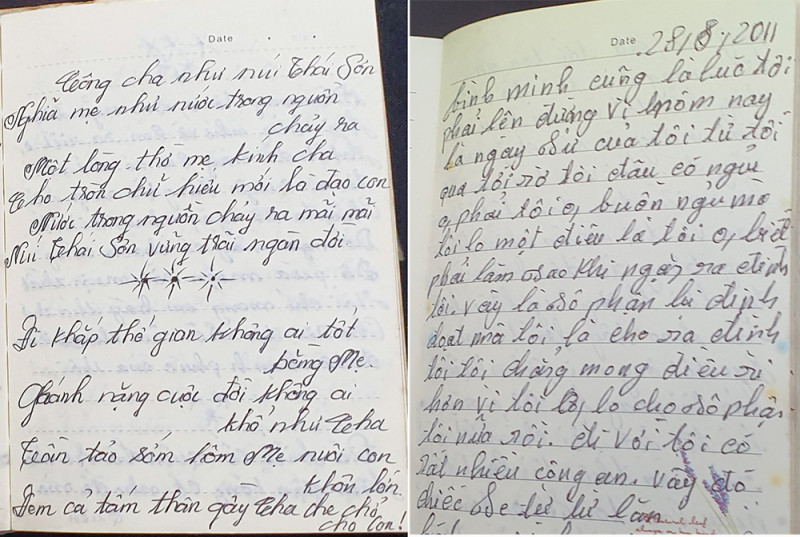 Date
Công cha như núi Thái Sơn
Nghĩa mẹ như nước trong nguồn
chảy ra
Một lòng thờ mẹ kính cha
Cho tròn chữ hiếu mới là đạo con
Nước trong nguồn chảy ra mãi mãi
Núi Thái Sơn vững trãi ngàn đời
Đi khắp thế gian không ai tốt
bằng Mẹ.
Gánh nặng cuộc đời không ai
khổ như Cha
Tần tảo sớm hôm Mẹ nuôi con
khôn lớn
Đem cả tấm thân gầy Cha che chở
cho con!
Date 28/8/2011
bình minh cũng là lúc tôi
phải lên đường vì hôm nay
là ngày sử của tôi từ tối
qua tới giờ tôi đâu có ngủ
phải tôi buồn ngủ mà
tôi lo một điều là tôi biết
phải làm sao khi ngày ra đình
tôi. vậy là số phận bị định
đoạt mà tôi là cho ra đình
tôi tôi chẳng mong điều gì
hơn vì tôi lo cho số phận
tôi nửa rồi. đi với tôi có
rất nhiều công an. vậy đó
chiếc se từ từ lăn